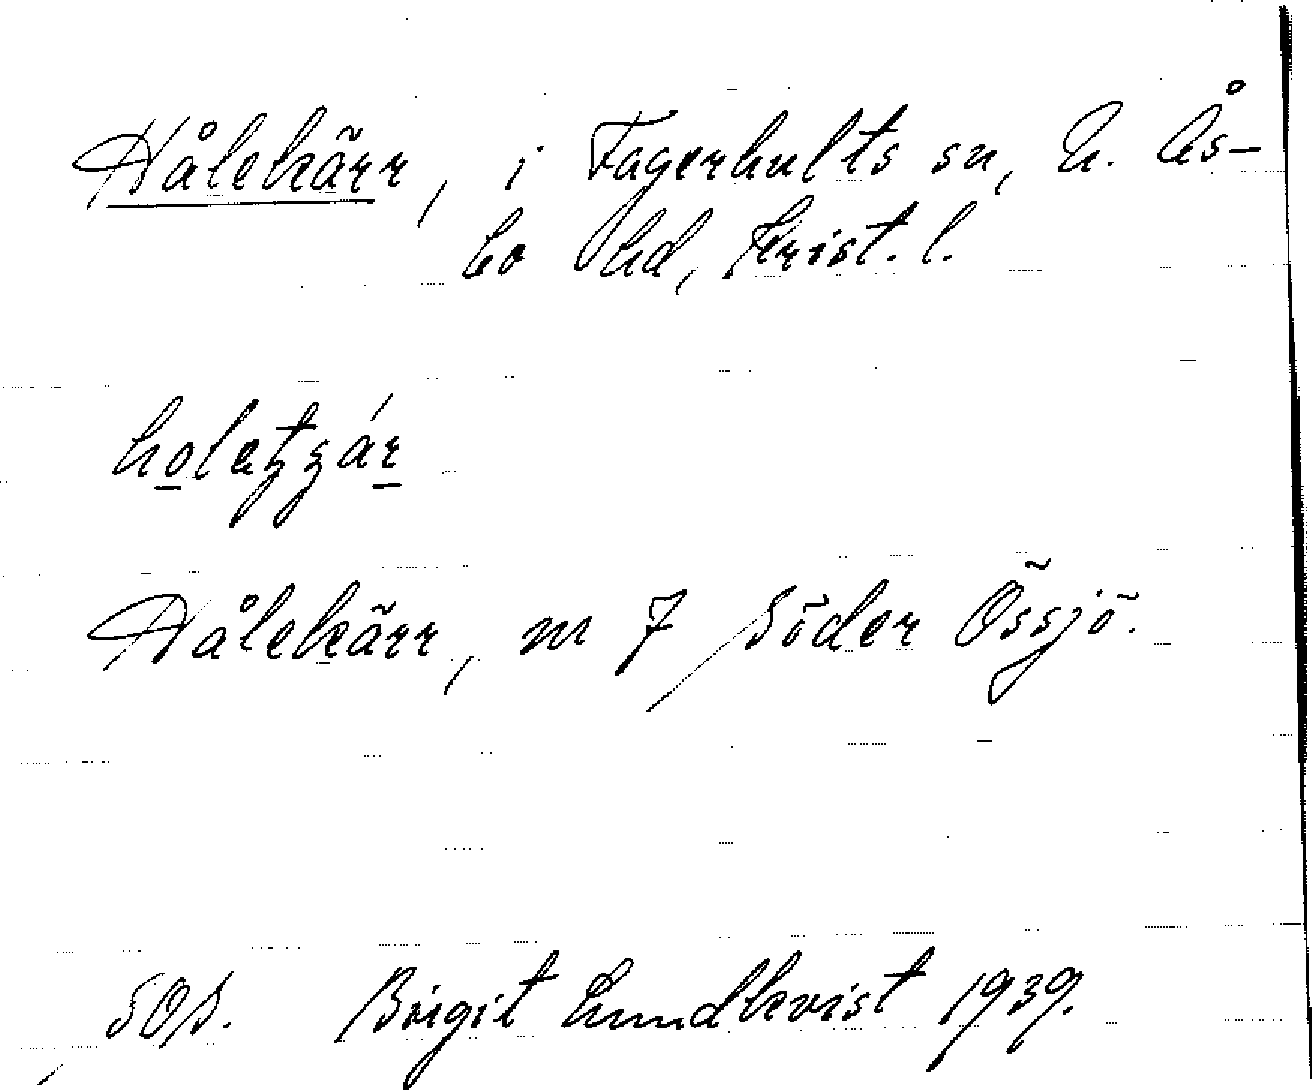 Hålekärr, i Fagerhults sn, N. Ås-
bo hd, Krist. l.
Hålekärr, m 7 Söder Össjö.
SOS. Birgit Lundkvist 1939.